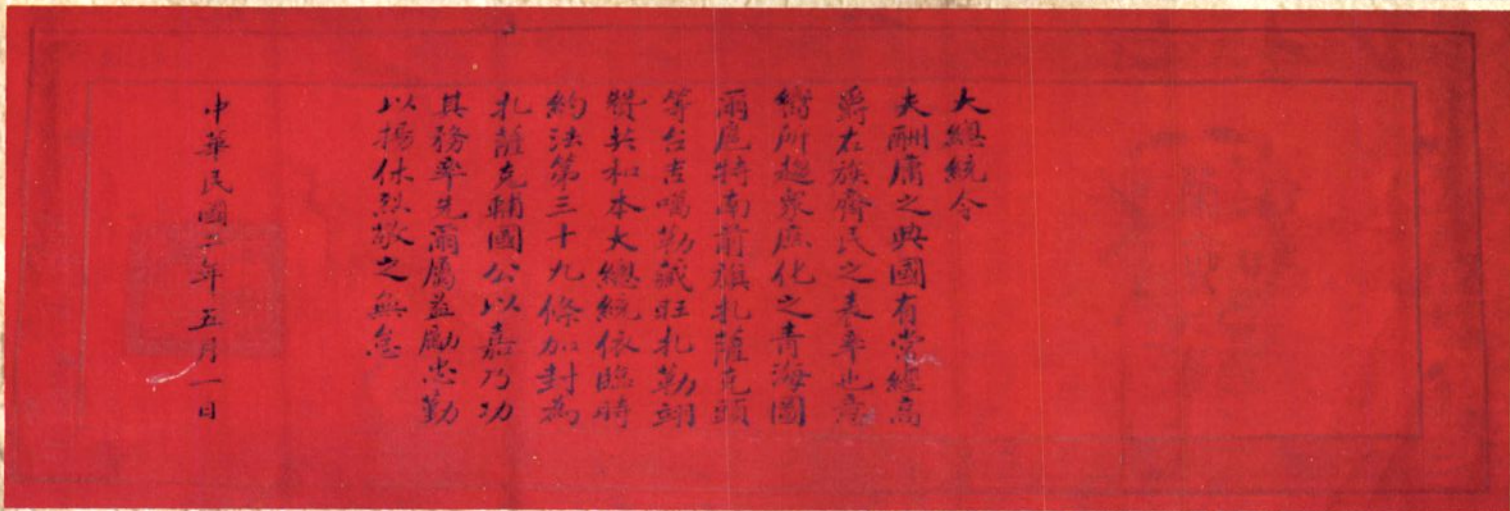 大總統令
夫酬庸之典國有常經高
爵右族齊民之表率也意
嚮所趨衆庶化之青海圖
爾扈特南前旗札薩克頭
等台吉噶勒藏旺札勒翊
贊共和本大總統依臨時
約法第三十九條加封為
札薩克輔國公以嘉乃功
其務率先爾屬益勵忠勤
以揚休烈敬之無怠
中華民國二年五月一日